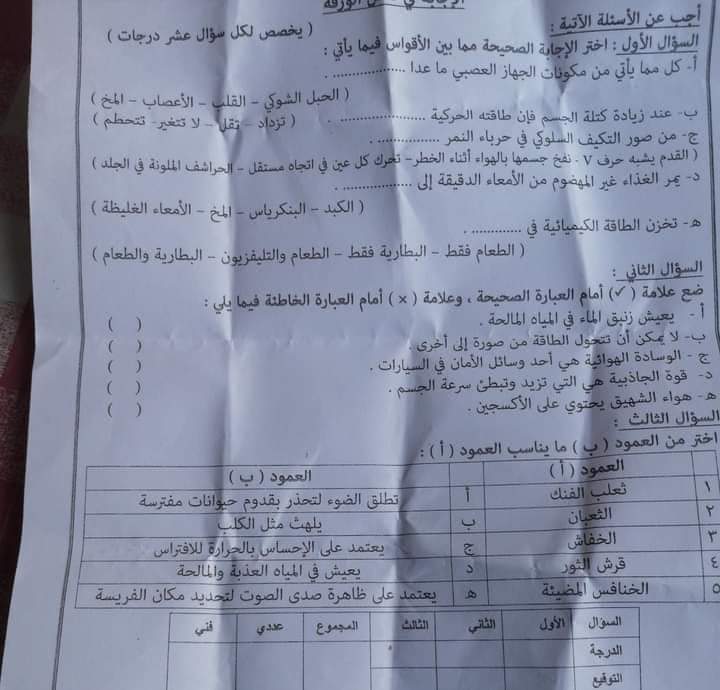 أجب عن الأسئلة الآتية :
السؤال الأول : اختر الإجابة الصحيحة مما بين الأقواس فيما يأتي : ( يخصص لكل سؤال عشر درجات )
أ- كل مما يأتي من مكونات الجهاز العصبي ما عدا ..................
( الحبل الشوكي – القلب – الأعصاب – المخ )
ب- عند زيادة كتلة الجسم فإن طاقته الحركية .................... .
( تزداد – تقل – لا تتغير- تتحطم )
ج- من صور التكيف السلوكي في حرباء النمر ..................
( القدم يشبه حرف V - نفخ جسمها بالهواء أثناء الخطر- تحرك كل عين في اتجاه مستقل – الحراشف الملونة في الجلد )
د- يمر الغذاء غير المهضوم من الأمعاء الدقيقة إلى .................. .
( الكبد – البنكرياس – المخ – الأمعاء الغليظة )
ه- تخزن الطاقة الكيميائية في ............. .
( الطعام فقط – البطارية فقط – الطعام والتليفزيون – البطارية والطعام )
السؤال الثاني :
ضع علامة ( ✓ ) أمام العبارة الصحيحة ، وعلامة ( × ) أمام العبارة الخاطئة فيما يلي :
أ - يعيش زنبق الماء في المياه المالحة . ( )
ب- لا يمكن أن تتحول الطاقة من صورة إلى أخرى . ( )
ج - الوسادة الهوائية هي أحد وسائل الأمان في السيارات . ( )
د- قوة الجاذبية هي التي تزيد وتبطئ سرعة الجسم . ( )
ه- هواء الشهيق يحتوي على الأكسجين . ( )
السؤال الثالث :
اختر من العمود ( ب ) ما يناسب العمود ( أ ) :
العمود ( أ ) العمود ( ب )
١ ثعلب الفنك أ تطلق الضوء لتحذر بقدوم حيوانات مفترسة
٢ الثعبان ب يلهث مثل الكلب
٣ الخفاش ج يعتمد على الإحساس بالحرارة للافتراس
٤ قرش الثور د يعيش في المياه العذبة والمالحة
٥ الخنافس المضيئة ه يعتمد على ظاهرة صدى الصوت لتحديد مكان الفريسة
السؤال الأول الثاني الثالث المجموع عددي فني
الدرجة
التوقيع